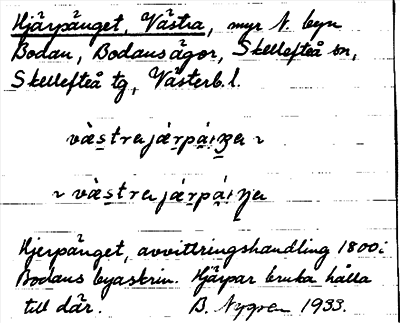 Hjärpänget, Västra, myr N. byn
Bodan, Bodans ägor, Skellefteå sn,
Skellefteå tg, Västerb.l.
Hjerpänget, avvittringshandling 1800 i
Bodans byaskrin. Hjärpar bruka hålla
till där. B. Nygren 1933.